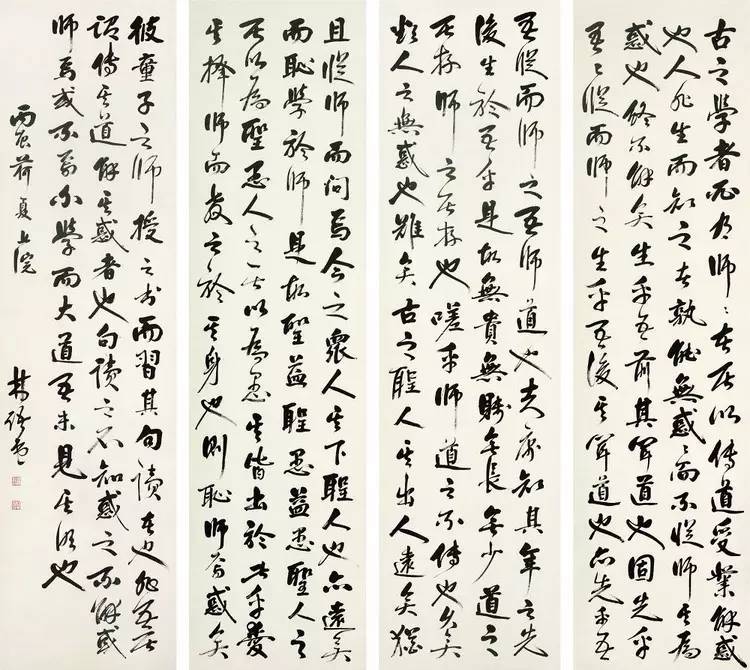 古之學者必有師々者所以傳道受業解惑
也人非生而知之者孰能無惑々而不從師其為
惑也終不解矣生乎吾前其聞道也固先乎
吾々從而師之生乎吾後其聞道也亦先乎吾
吾從而師之吾師道也夫庸知其年之先
後生於吾乎是故無貴無賤無長無少道之
所存師之所存也嗟乎師道之不傳也久矣
欲人之無惑也難矣古之聖人其出人遠矣猶
且從師而問焉今之眾人其下聖人也亦遠矣
而恥學於師是故聖益聖愚益愚聖人之
所以為聖愚人之所以為愚其皆出於此乎愛
其擇師而教之於其身也則恥師焉惑矣
彼童子之師授之書而習其句讀者也非吾所
謂傳其道解其惑者也句讀之不知惑之不解或
師焉或不焉小學而大道吾未見其明也
丙寅荷夏上浣